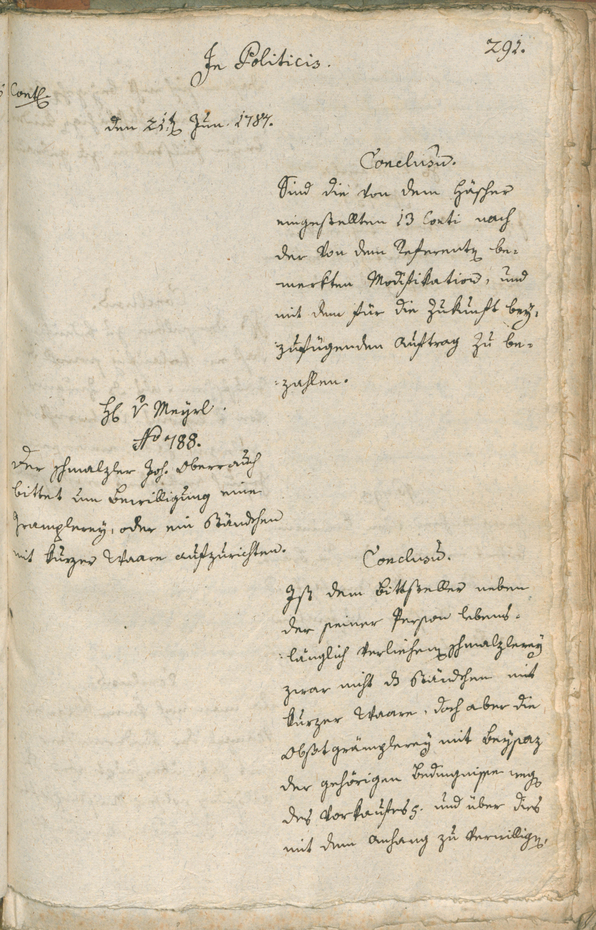 291.
In Politicis.
Contl.
den 21t Jun. 1787.
Conclusũ.
Sind die von dem Häscher
eingestellten 13 Conti nach
der von dem Referente be-
merkten Modifikation, und
mit dem für die Zukunft bey-
zufügenden Auftrag zu be-
zahlen.
H v Meyrl.
No 788.
Der Schmalzler Joh. Oberrauch
bittet um Bewilligung eine
Grämplerey, oder ein Ständchen
mit kurzer Waare aufzurichten.
Conclusũ.
Ist dem Bittsteller neben
der seiner Person lebens-
länglich verliehenen Schmalzlerey
zwar nicht ds Ständchen mit
kurzer Waare, doch aber die
Obstgrämplerey mit Beysaz
der gehörigen Bedingnisse weg
des Vorkaufes und über dies
mit dem Anhang zu verwilligen,